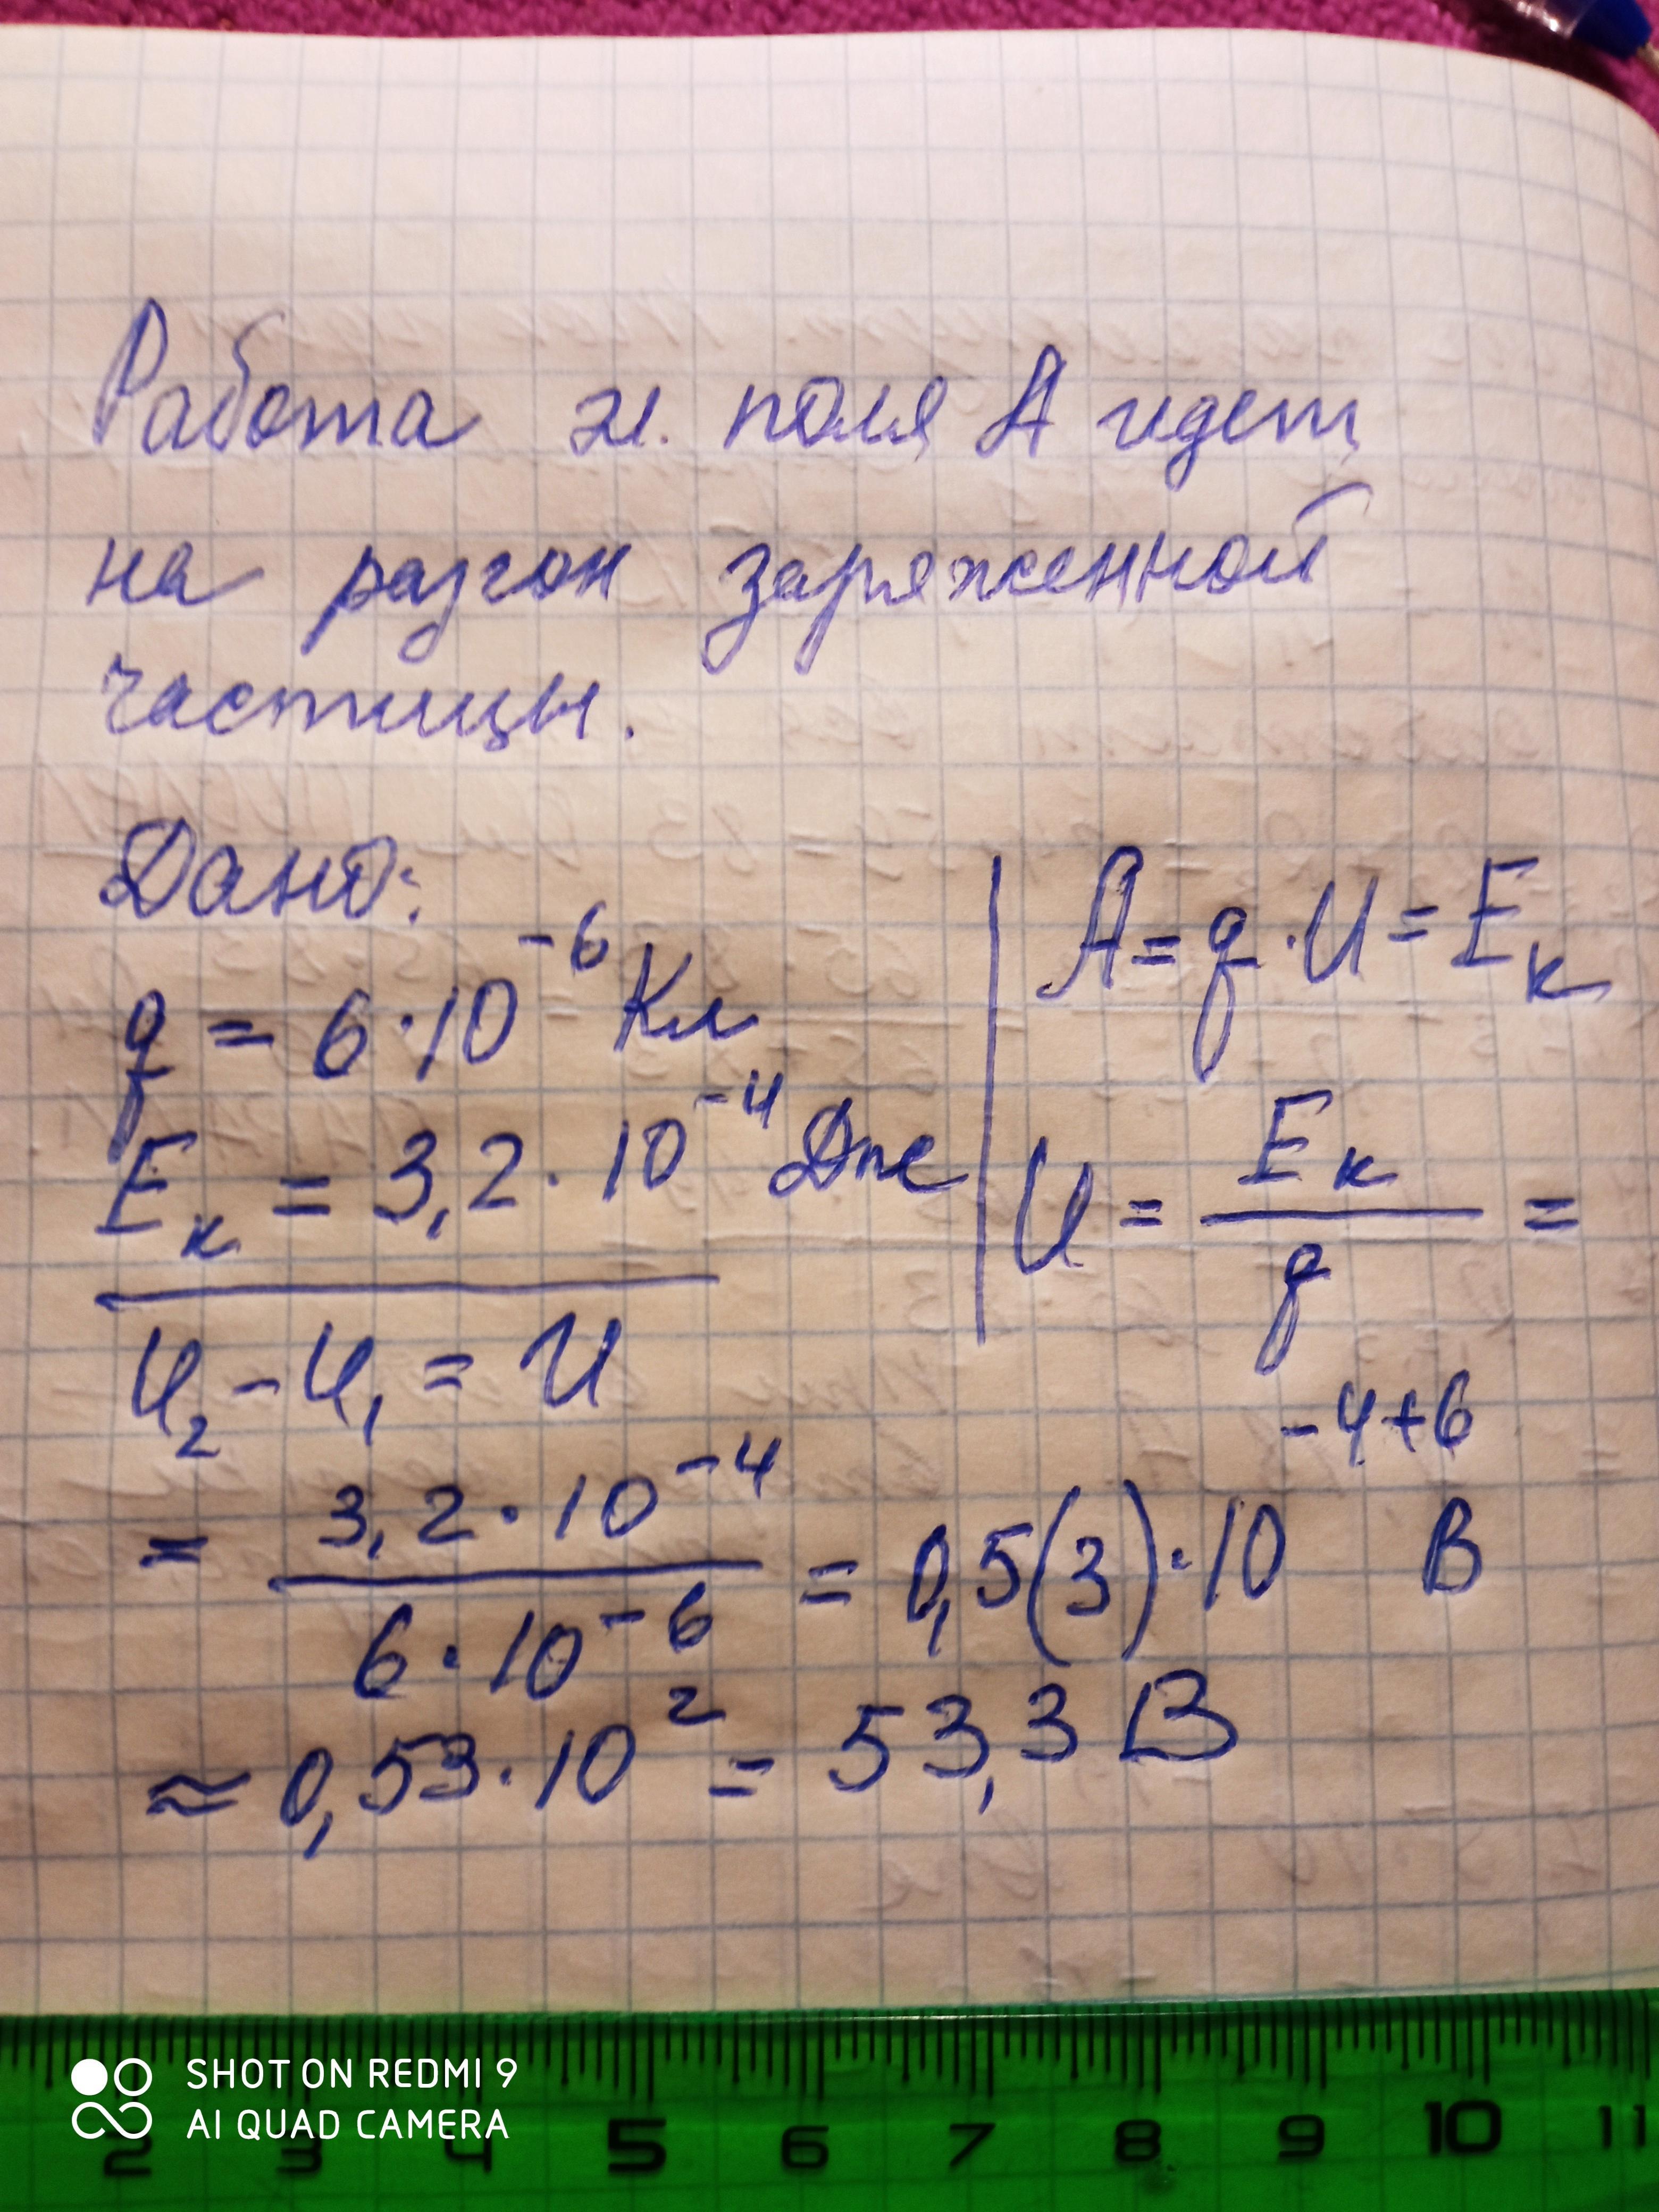 Работа эл. поля А идет
на разгон заряженной
частицы.
Дано:
q = 6·10⁻⁶ Кл
Eк = 3,2·10⁻⁴ Дж
φ₂ - φ₁ = U
A = q·U = Eк
U = Eк / q =
= 3,2·10⁻⁴ / 6·10⁻⁶ = 0,5(3)·10⁻⁴⁺⁶ В
≈ 0,53·10² = 53,3 В
SHOT ON REDMI 9
AI QUAD CAMERA
2 3 4 5 6 7 8 9 10 11